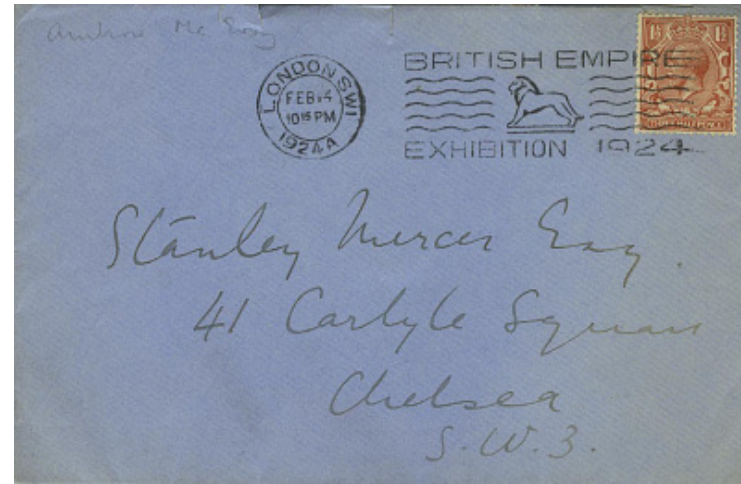 Ambrose Mc Evoy
LONDON S.W.1
FEB 14
10 15 PM
1924 A
BRITISH EMPIRE
EXHIBITION 1924
1½ 1½
Stanley Mercer Esq.
41 Carlyle Square
Chelsea
S.W.3.